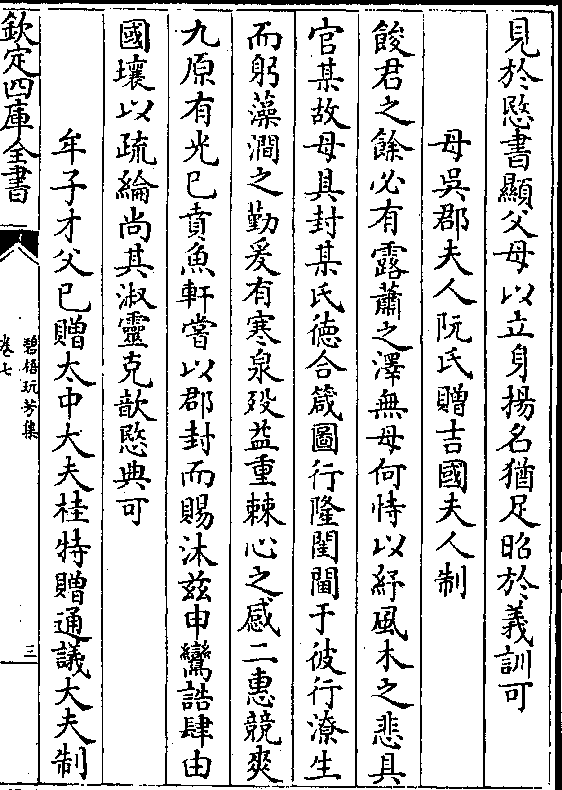 見於愍書顯父母以立身揚名猶足昭於義訓可
母吳郡夫人阮氏贈吉國夫人制
餕君之餘必有露蕭之澤無母何恃以紓風木之悲具
官某故母具封某氏徳合箴圖行隆閨閫于彼行潦生
而躬藻澗之勤爰有寒泉歿益重棘心之感二惠競爽
九原有光已賁魚軒嘗以郡封而賜沐兹申鸞誥肆由
國壤以疏綸尚其淑靈克歆愍典可
牟子才父已贈太中大夫桂特贈通議大夫制
欽定四庫全書
碧梧玩芳集
卷七
三